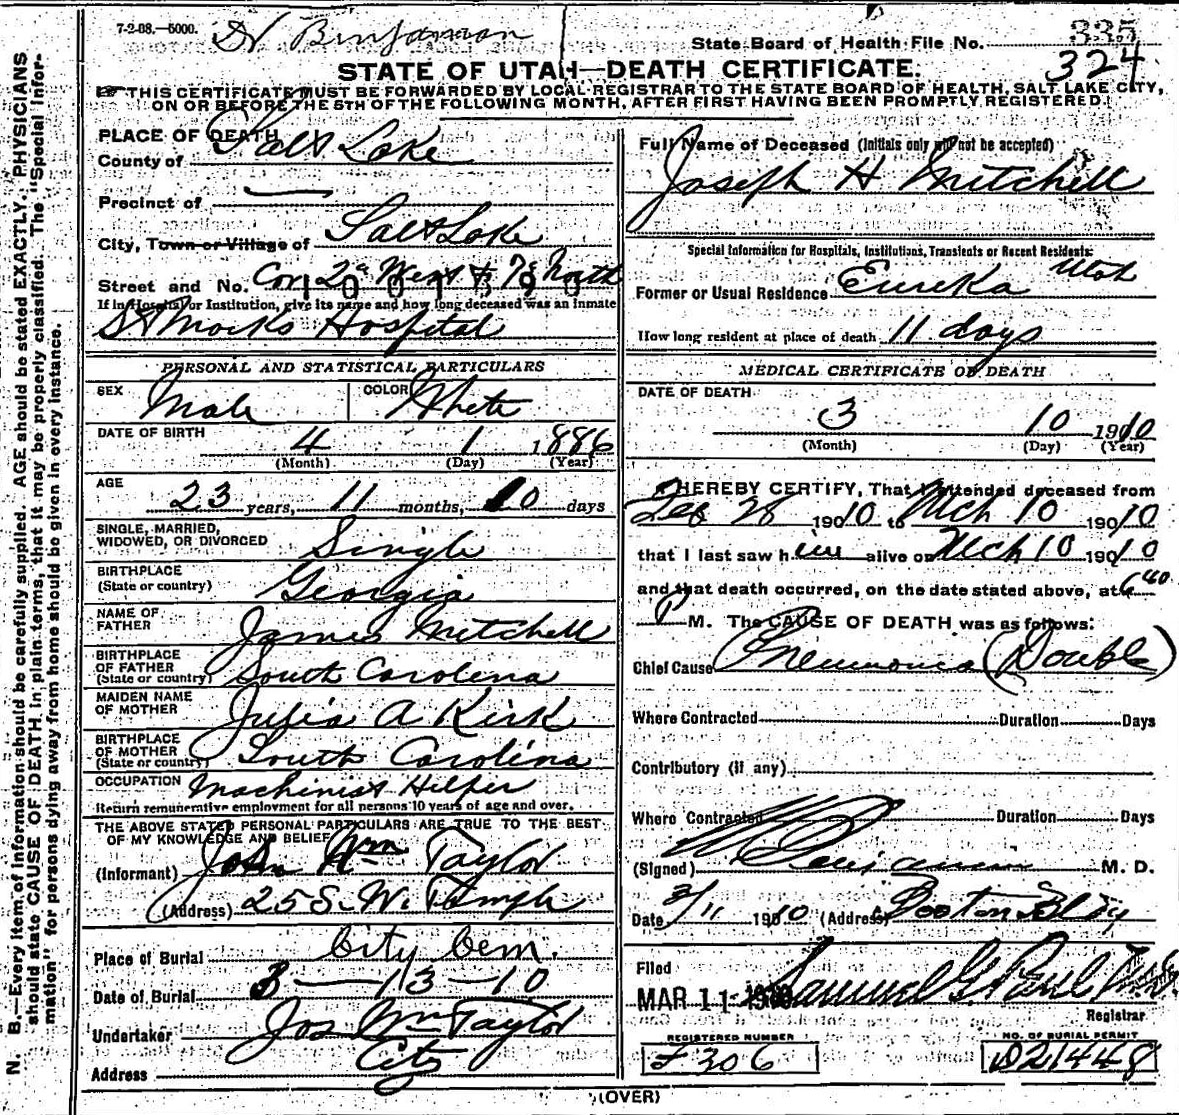 7-2-08.—5000. Dr Benjamin
State Board of Health File No. 335
324
STATE OF UTAH—DEATH CERTIFICATE.
THIS CERTIFICATE MUST BE FORWARDED BY LOCAL REGISTRAR TO THE STATE BOARD OF HEALTH, SALT LAKE CITY,
ON OR BEFORE THE 5TH OF THE FOLLOWING MONTH, AFTER FIRST HAVING BEEN PROMPTLY REGISTERED.
PLACE OF DEATH
County of Salt Lake
Precinct of —
City, Town or Village of Salt Lake
Street and No. Cor 2d West & 7th North
If in Hospital or Institution, give its name and how long deceased was an inmate
St Marks Hospital
PERSONAL AND STATISTICAL PARTICULARS
SEX Male COLOR White
DATE OF BIRTH 4 1 1886
(Month) (Day) (Year)
AGE 23 years, 11 months, 10 days
SINGLE, MARRIED,
WIDOWED, OR DIVORCED Single
BIRTHPLACE
(State or country) Georgia
NAME OF
FATHER James Mitchell
BIRTHPLACE
OF FATHER
(State or country) South Carolina
MAIDEN NAME
OF MOTHER Julia A Kirk
BIRTHPLACE
OF MOTHER
(State or country) South Carolina
OCCUPATION Machinist Helper
Return remunerative employment for all persons 10 years of age and over.
THE ABOVE STATED PERSONAL PARTICULARS ARE TRUE TO THE BEST
OF MY KNOWLEDGE AND BELIEF
(Informant) Jos Wm Taylor
(Address) 25 S. W. Temple
Place of Burial City Cem.
Date of Burial 3—13—10
Undertaker Jos Wm Taylor
Address City
Full Name of Deceased (Initials only will not be accepted)
Joseph H Mitchell
Special Information for Hospitals, Institutions, Transients or Recent Residents:
Former or Usual Residence Eureka Utah
How long resident at place of death 11 days
MEDICAL CERTIFICATE OF DEATH
DATE OF DEATH
3 10 1910
(Month) (Day) (Year)
I HEREBY CERTIFY, That I attended deceased from
Feb 28 19010 to Mch 10 19010
that I last saw him alive on Mch 10 19010
and that death occurred, on the date stated above, at 6 40
P M. The CAUSE OF DEATH was as follows:
Chief Cause Pneumonia (Double)
Where Contracted Duration Days
Contributory (if any)
Where Contracted Duration Days
(Signed) Benjamin M. D.
Date 3/11 19010 (Address) Boston Bldg
Filed
MAR 11 1910 Samuel G. Paul
Registrar
REGISTERED NUMBER NO. OF BURIAL PERMIT
306 D21448
(OVER)
N. B.—Every item of information should be carefully supplied. AGE should be stated EXACTLY. PHYSICIANS
should state CAUSE OF DEATH in plain terms, that it may be properly classified. The "Special Infor-
mation" for persons dying away from home should be given in every instance.